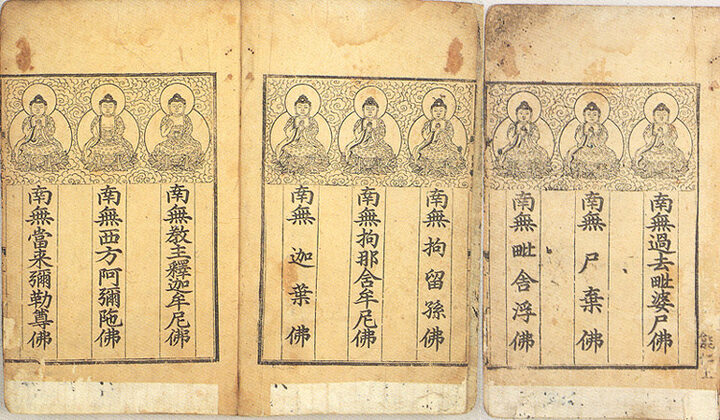 南無過去毗婆尸佛
南無尸棄佛
南無毗舍浮佛
南無拘留孫佛
南無拘那舍牟尼佛
南無迦葉佛
南無教主釋迦牟尼佛
南無西方阿彌陁佛
南無當来彌勒尊佛